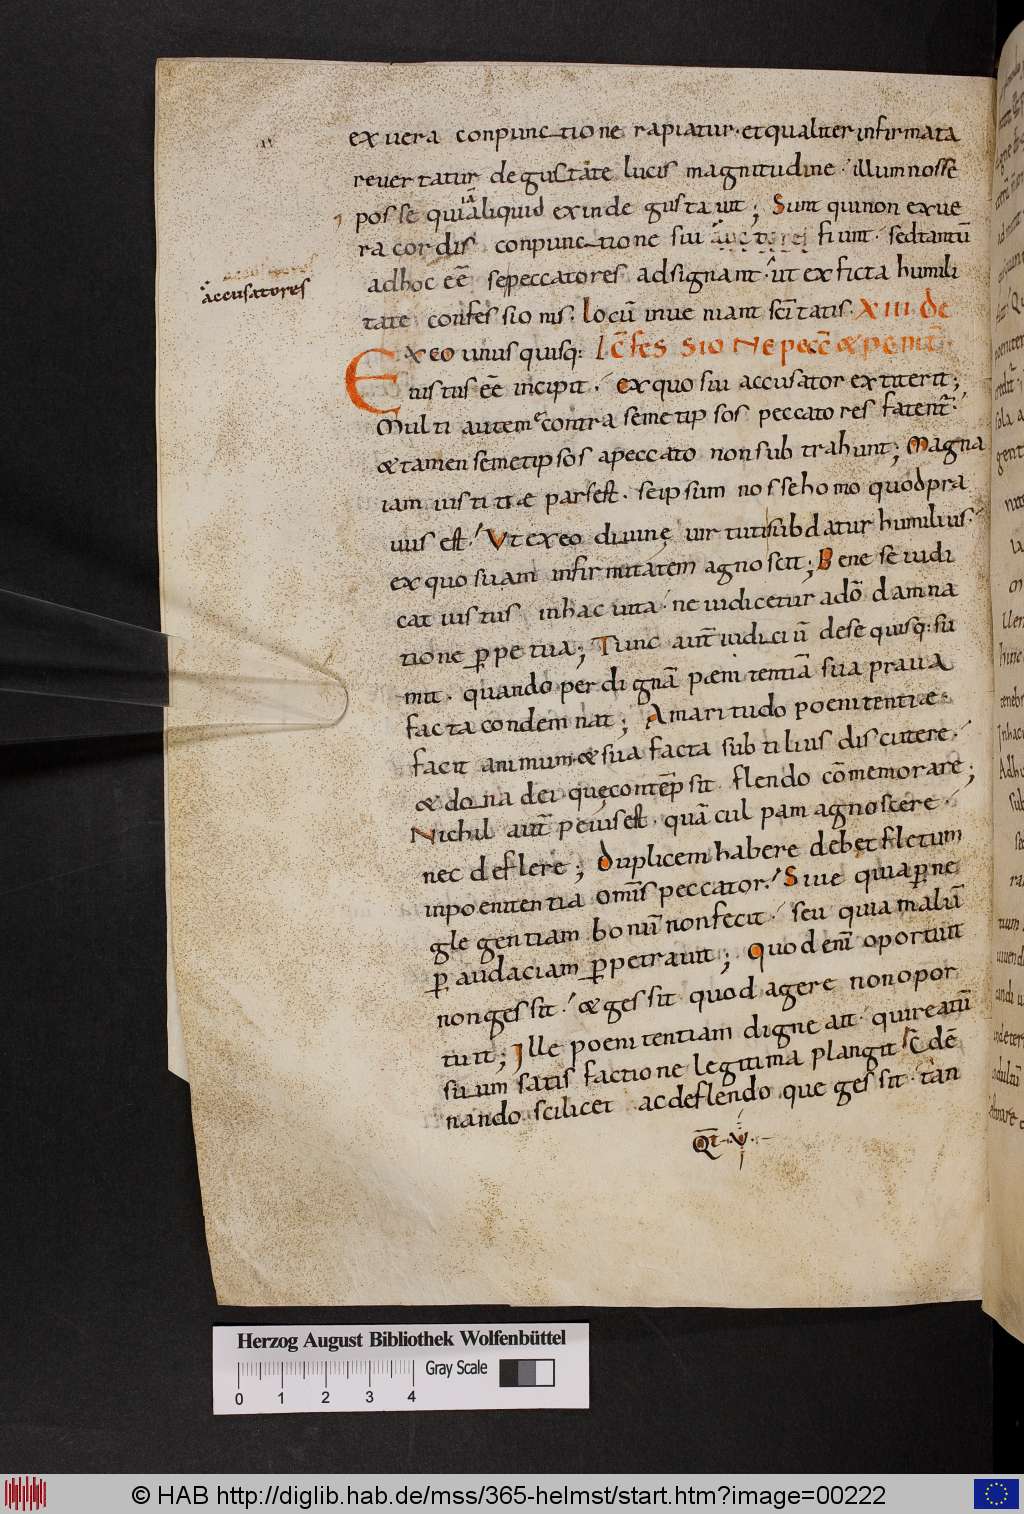 ex uera conpunctione rapiatur· et qualiter infirmata
reuertatur degustate lucis magnitudine· illum nosse
posse qui iā aliquid exinde gustauit; Sunt qui non ex ue
ra cordis conpunctione sui fiunt· sed tantū
accusatores
ad hoc eē se peccatores adsignant· ut ex ficta humili
tate confessionis· locū inueniant scītatis· XIII de
Ex eo unusquisq: cōfessione peccē & penit̄
iustus eē incipit· ex quo sui accusator extiterit;
Multi autem e contra semetipsos peccatores fatent̄·
& tamen semetipsos a peccato non subtrahunt; Magna
iam iustitiae pars est· se ipsum nosse homo quod pra
uus est· Ut ex eo diuinę uirtuti subdatur humilius·
ex quo suam infirmitatem agnoscit; Bene se iudi
cat iustus in hac uita· ne iudicetur a dō damna
tione ꝑpetua; Tunc aut̄ iudiciū de se quisq: su
mit· quando per dignā paenitentiā sua praua
facta condemnat; Amaritudo poenitentiae
facit animum· & sua facta subtilius discutere·
& dona dei quę contēpsit flendo cōmemorare;
Nichil aut̄ peius est· quā culpam agnoscere·
nec deflere; Duplicem habere debet fletum
in poenitentia omis̄ peccator· Siue quia ꝑ ne
glegentiam bonū non fecit· seu quia malū
ꝑ audaciam ꝑpetrauit; Quod enī oportuit
non gessit· & gessit quod agere non opor
tuit; Ille poenitentiam digne ait· qui reatū
suum satisfactione legitima plangit cōdē
nando scilicet ac deflendo que gessit· tan
Qt· V·
Herzog August Bibliothek Wolfenbüttel
Gray Scale
0 1 2 3 4
© HAB http://diglib.hab.de/mss/365-helmst/start.htm?image=00222